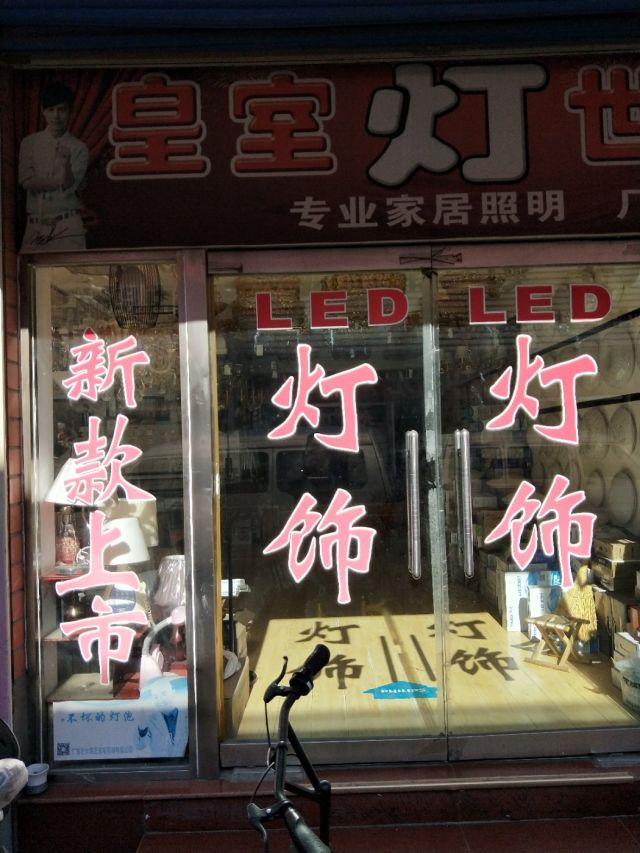 皇室灯世
专业家居照明 厂
LED
LED
新款上市
灯饰
灯饰
灯饰
灯饰
PHILIPS
不坏的灯泡